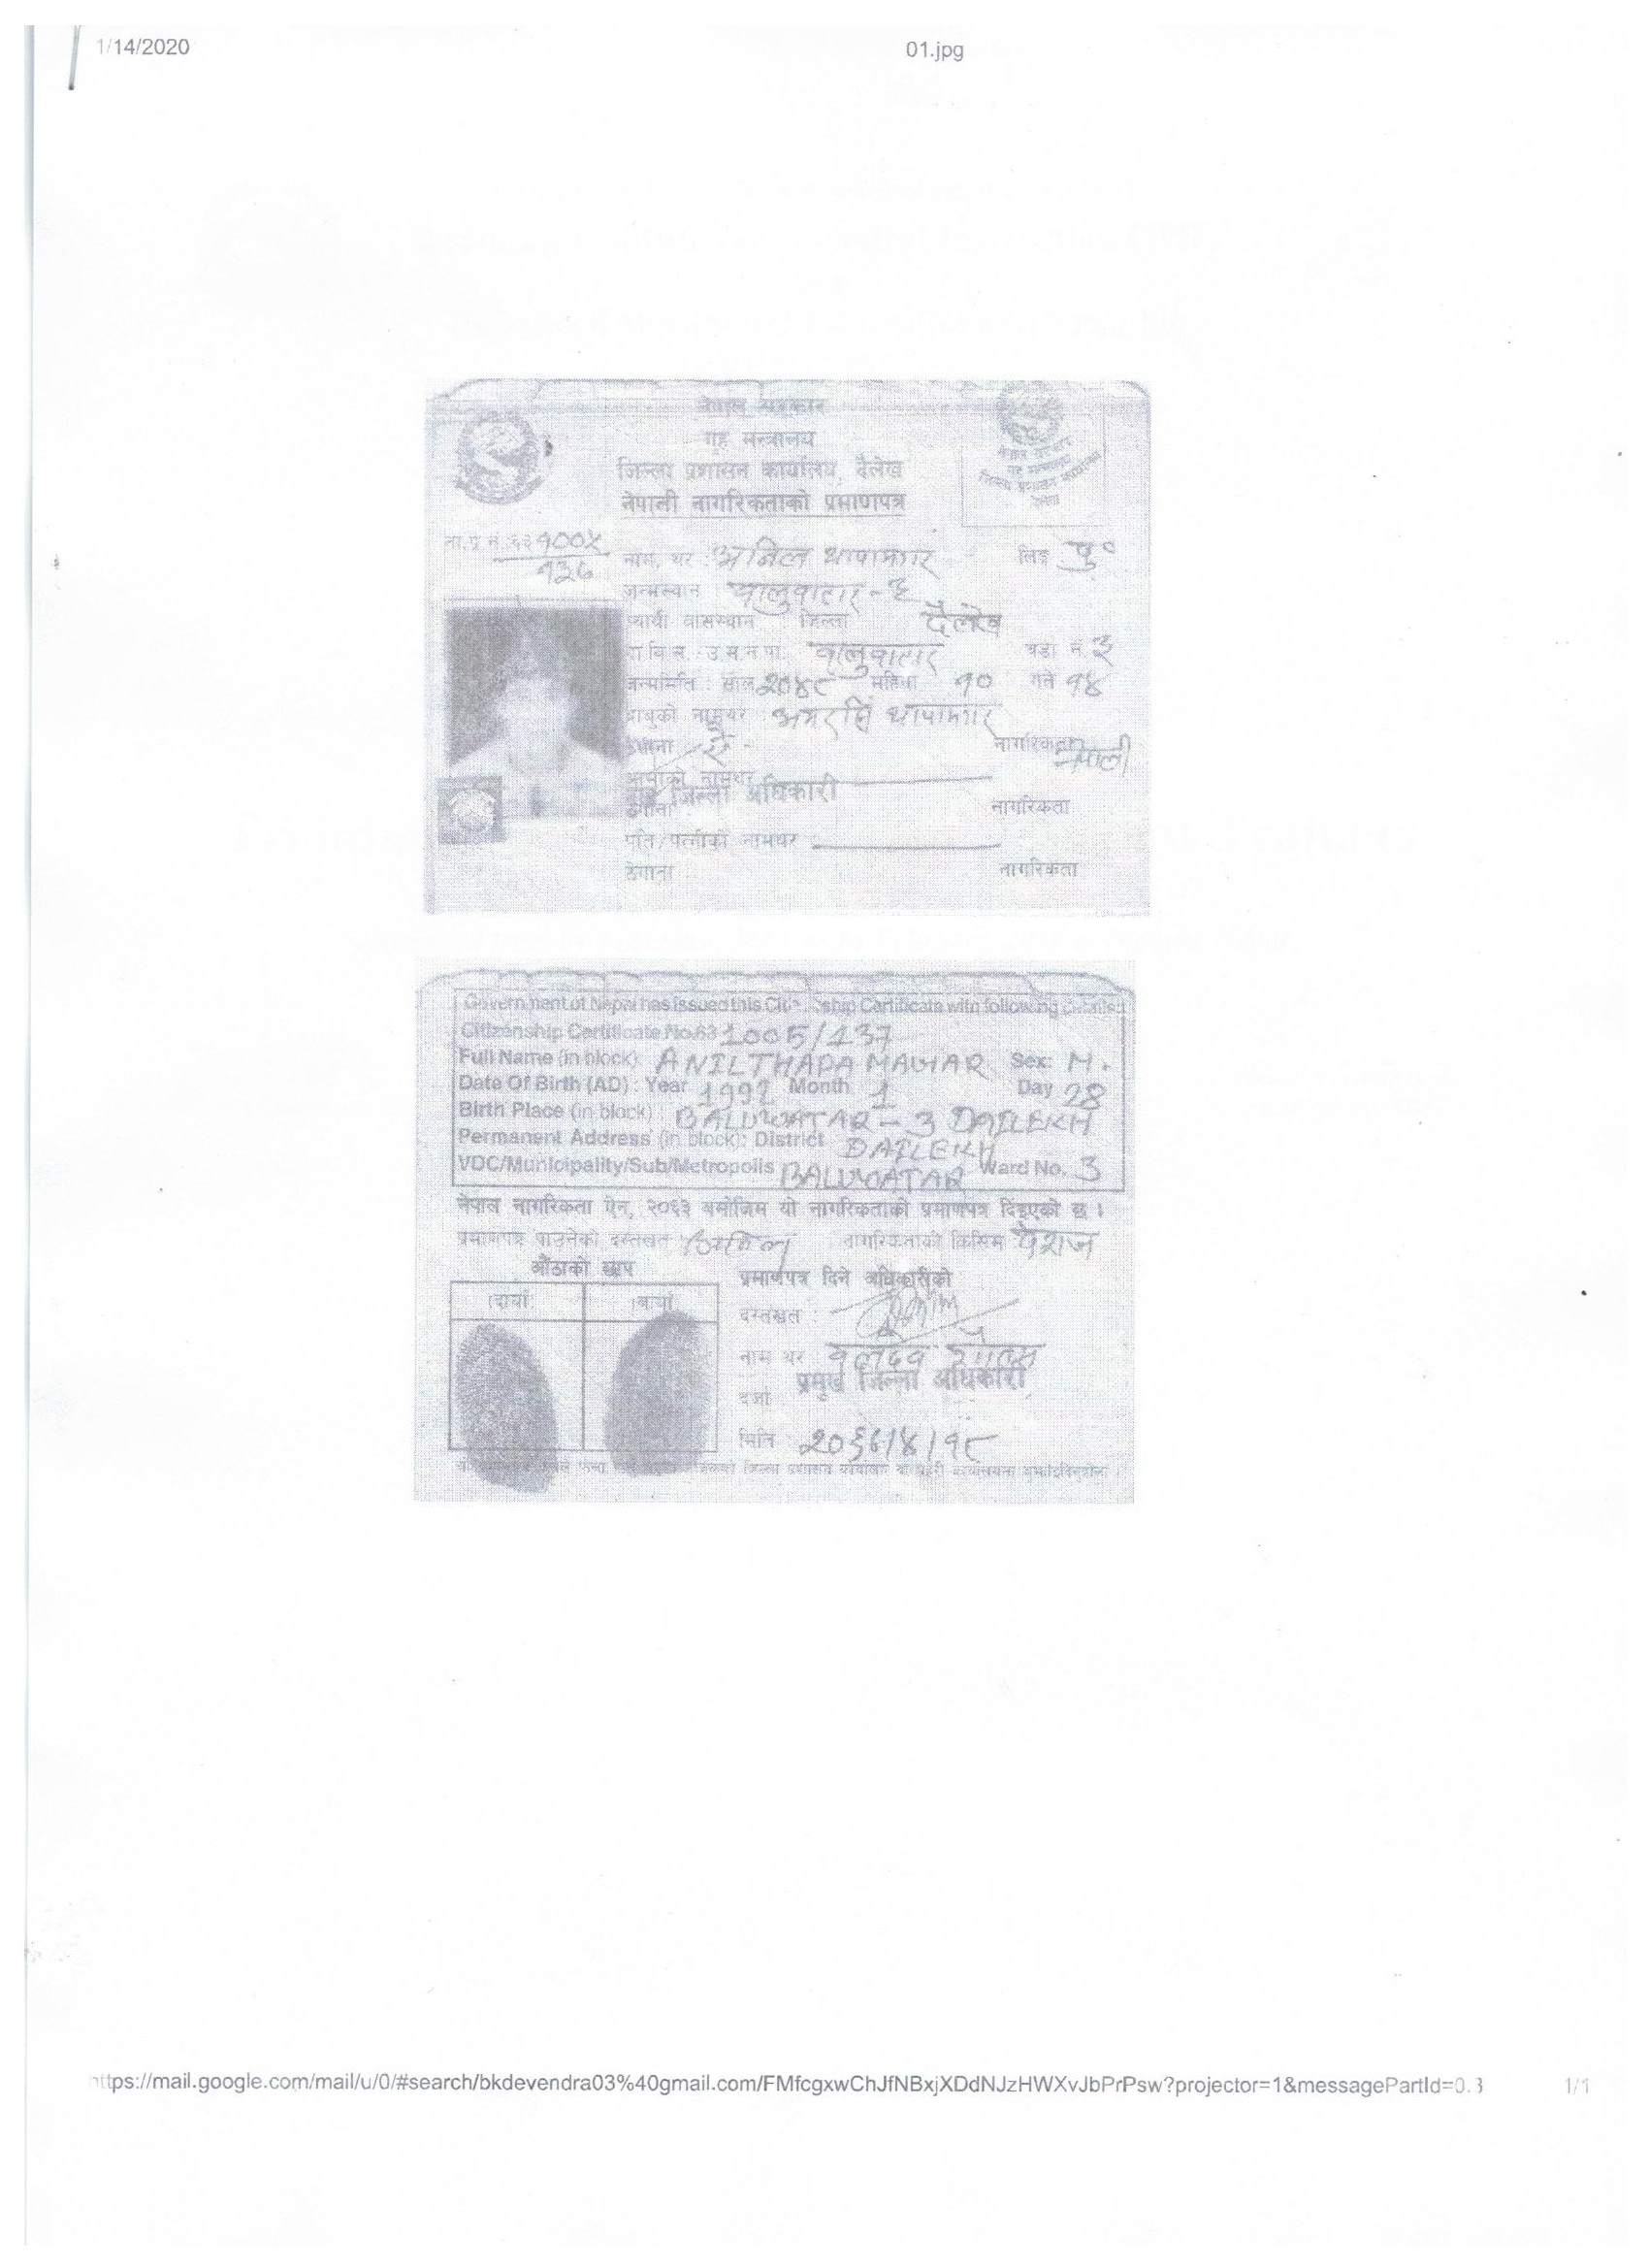 1/14/2020 01.jpg
नेपाल सरकार
गृह मन्त्रालय
जिल्ला प्रशासन कार्यालय, दैलेख
नेपाली नागरिकताको प्रमाणपत्र
ना.प्र.नं. ६३१००५
नाम, थर : अनिल थापामगर लिङ्ग : पु०
जन्मस्थान बालुवाटार-३
स्थायी बासस्थान : जिल्ला दैलेख
गा.वि.स. उ.म.न.पा. बालुवाटार वडा नं. ३
जन्ममिति : साल २०४८ महिना १० गते १४
बाबुको नामथर : थापामगर
ठेगाना नागरिकता नेपाली
आमाको नामथर
जिल्ला अधिकारी
ठेगाना नागरिकता
पति/पत्नीको नामथर
ठेगाना नागरिकता
Government of Nepal has issued this Citizenship Certificate with following
Citizenship Certificate No. 63 1005/137
Full Name (in block) ANIL THAPA MAGAR Sex: M.
Date Of Birth (AD) : Year 1992 Month 1 Day 28
Birth Place (in block) : BALUWATAR - 3 DAILEKH
Permanent Address (in block): District DAILEKH
VDC/Municipality/Sub/Metropolis BALUWATAR Ward No. 3
नेपाल नागरिकता ऐन, २०६३ बमोजिम यो नागरिकताको प्रमाणपत्र दिइएको छ ।
प्रमाणपत्र पाउनेको दस्तखत : अनिल नागरिकताको किसिम
औंठाको छाप
प्रमाणपत्र दिने अधिकारीको
दायाँ बायाँ
दस्तखत :
नाम थर
प्रमुख जिल्ला अधिकारी
दर्जा
मिति
https://mail.google.com/mail/u/0/#search/bkdevendra03%40gmail.com/FMfcgxwChJfNBxjXDdNJzHWXvJbPrPsw?projector=1&messagePartId=0.3 1/1